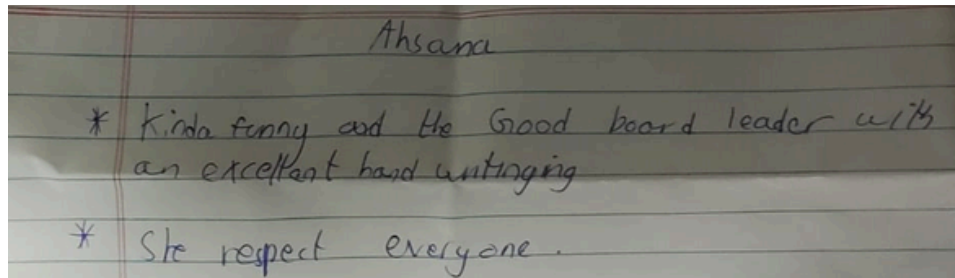 Ahsana
* Kinda funny and the Good board leader with
an excellant hand writinging
* She respect everyone.